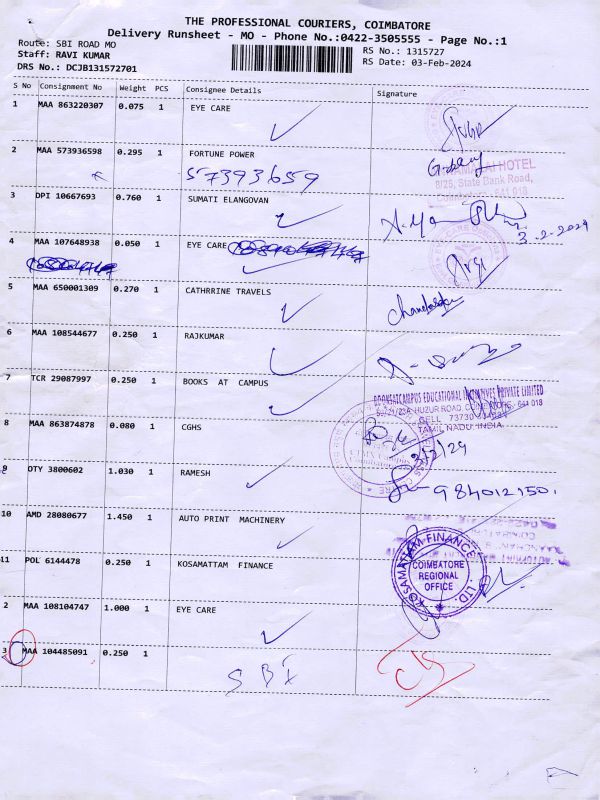 THE PROFESSIONAL COURIERS, COIMBATORE
Delivery Runsheet - MO - Phone No.:0422-3505555 - Page No.:1
Route: SBI ROAD MO
RS No.: 1315727
Staff: RAVI KUMAR
RS Date: 03-Feb-2024
DRS No.: DCJB131572701
S No Consignment No Weight PCS Consignee Details Signature
1 MAA 863220307 0.075 1 EYE CARE
2 MAA 573936598 0.295 1 FORTUNE POWER
57393659
HOTEL
8/25, State Bank Road,
641 018
3 DPI 10667693 0.760 1 SUMATI ELANGOVAN
3-2-2024
4 MAA 107648938 0.050 1 EYE CARE
5 MAA 650001309 0.270 1 CATHRRINE TRAVELS
6 MAA 108544677 0.250 1 RAJKUMAR
7 TCR 29087997 0.250 1 BOOKS AT CAMPUS
EDUCATIONAL PRIVATE LIMITED
HUZUR ROAD, 641 018
CELL 73730
TAMIL NADU, INDIA.
8 MAA 863874878 0.080 1 CGHS
3/2/24
9 OTY 3800602 1.030 1 RAMESH
9840121501
10 AMD 28080677 1.450 1 AUTO PRINT MACHINERY
11 POL 6144478 0.250 1 KOSAMATTAM FINANCE
KOSAMATTAM FINANCE LTD.
COIMBATORE
REGIONAL
OFFICE
2 MAA 108104747 1.000 1 EYE CARE
3 MAA 104485091 0.250 1
SBI